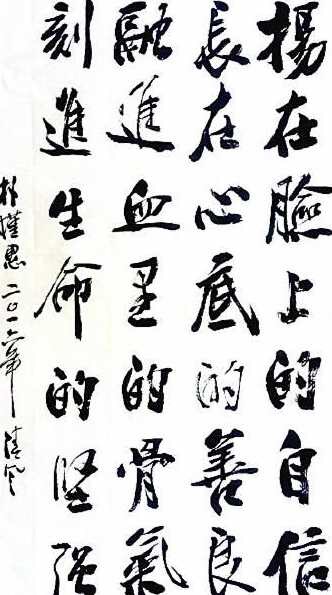 揚在臉上的自信
長在心底的善良
融進血里的骨氣
刻進生命的堅强
二〇一六年 清風